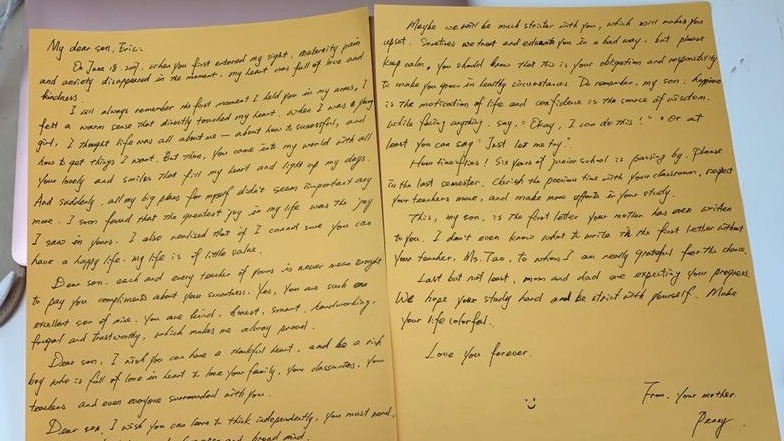 My dear son, Eric:
On June 18. 2007, when you first entered my sight, maternity pain
and anxiety disappeared in the moment. my heart was full of love and
kindness.
I will always remember the first moment I held you in my arms, I
felt a warm sense that directly touched my heart. when I was a young
girl, I thought life was all about me — about how to successful, and
how to get things I want. But then, you came into my world with all
your lovely and smiles that fill my heart and light up my days.
And suddenly, all my big plans for myself didn't seem important any
more. I soon found that the greatest joy in my life was the joy
I saw in yours. I also realized that if I cannot sure you can
have a happy life. my life is of little value.
Dear son. each and every teacher of yours is never mean
to pay you compliments about your smartness. Yes, you are such one
excellent son of mine. You are kind, honest, smart, hardworking,
frugal and trustworthy, which makes me alway proud.
Dear son, I wish you can have a thankful heart, and be a rich
boy who is full of love in heart to love your family, your classmates, your
teachers and even everyone surrounded with you.
Dear son, I wish you can learn to think independently, you must read,
and broad mind.
Maybe we will be much stricter with you, which will makes you
upset. Sometimes we treat and educate you in a bad way. but please
keep calm, you should know that this is your obligation and responsibility
to make you grow in healthy circumstances. Do remember, my son: happiness
is the motivation of life and confidence is the source of wisdom.
While facing anything. say, "Okay, I can do this!" Or at
least you can say "Just let me try".
How time flies! Six years of junior school is passing by. Please
in the last semester. Cherish the precious time with your classroom, respect
your teachers more, and make more efforts in your study.
This, my son. is the first letter your mother has ever written
to you. I don't even know what to write in the first letter without
your teacher, Ms. Tao, to whom I am really grateful for the chance.
Last but not least, mom and dad are expecting your progress.
We hope your study hard and be strict with yourself. Make
your life colorful.
Love you forever.
From. Your mother.
Penny.